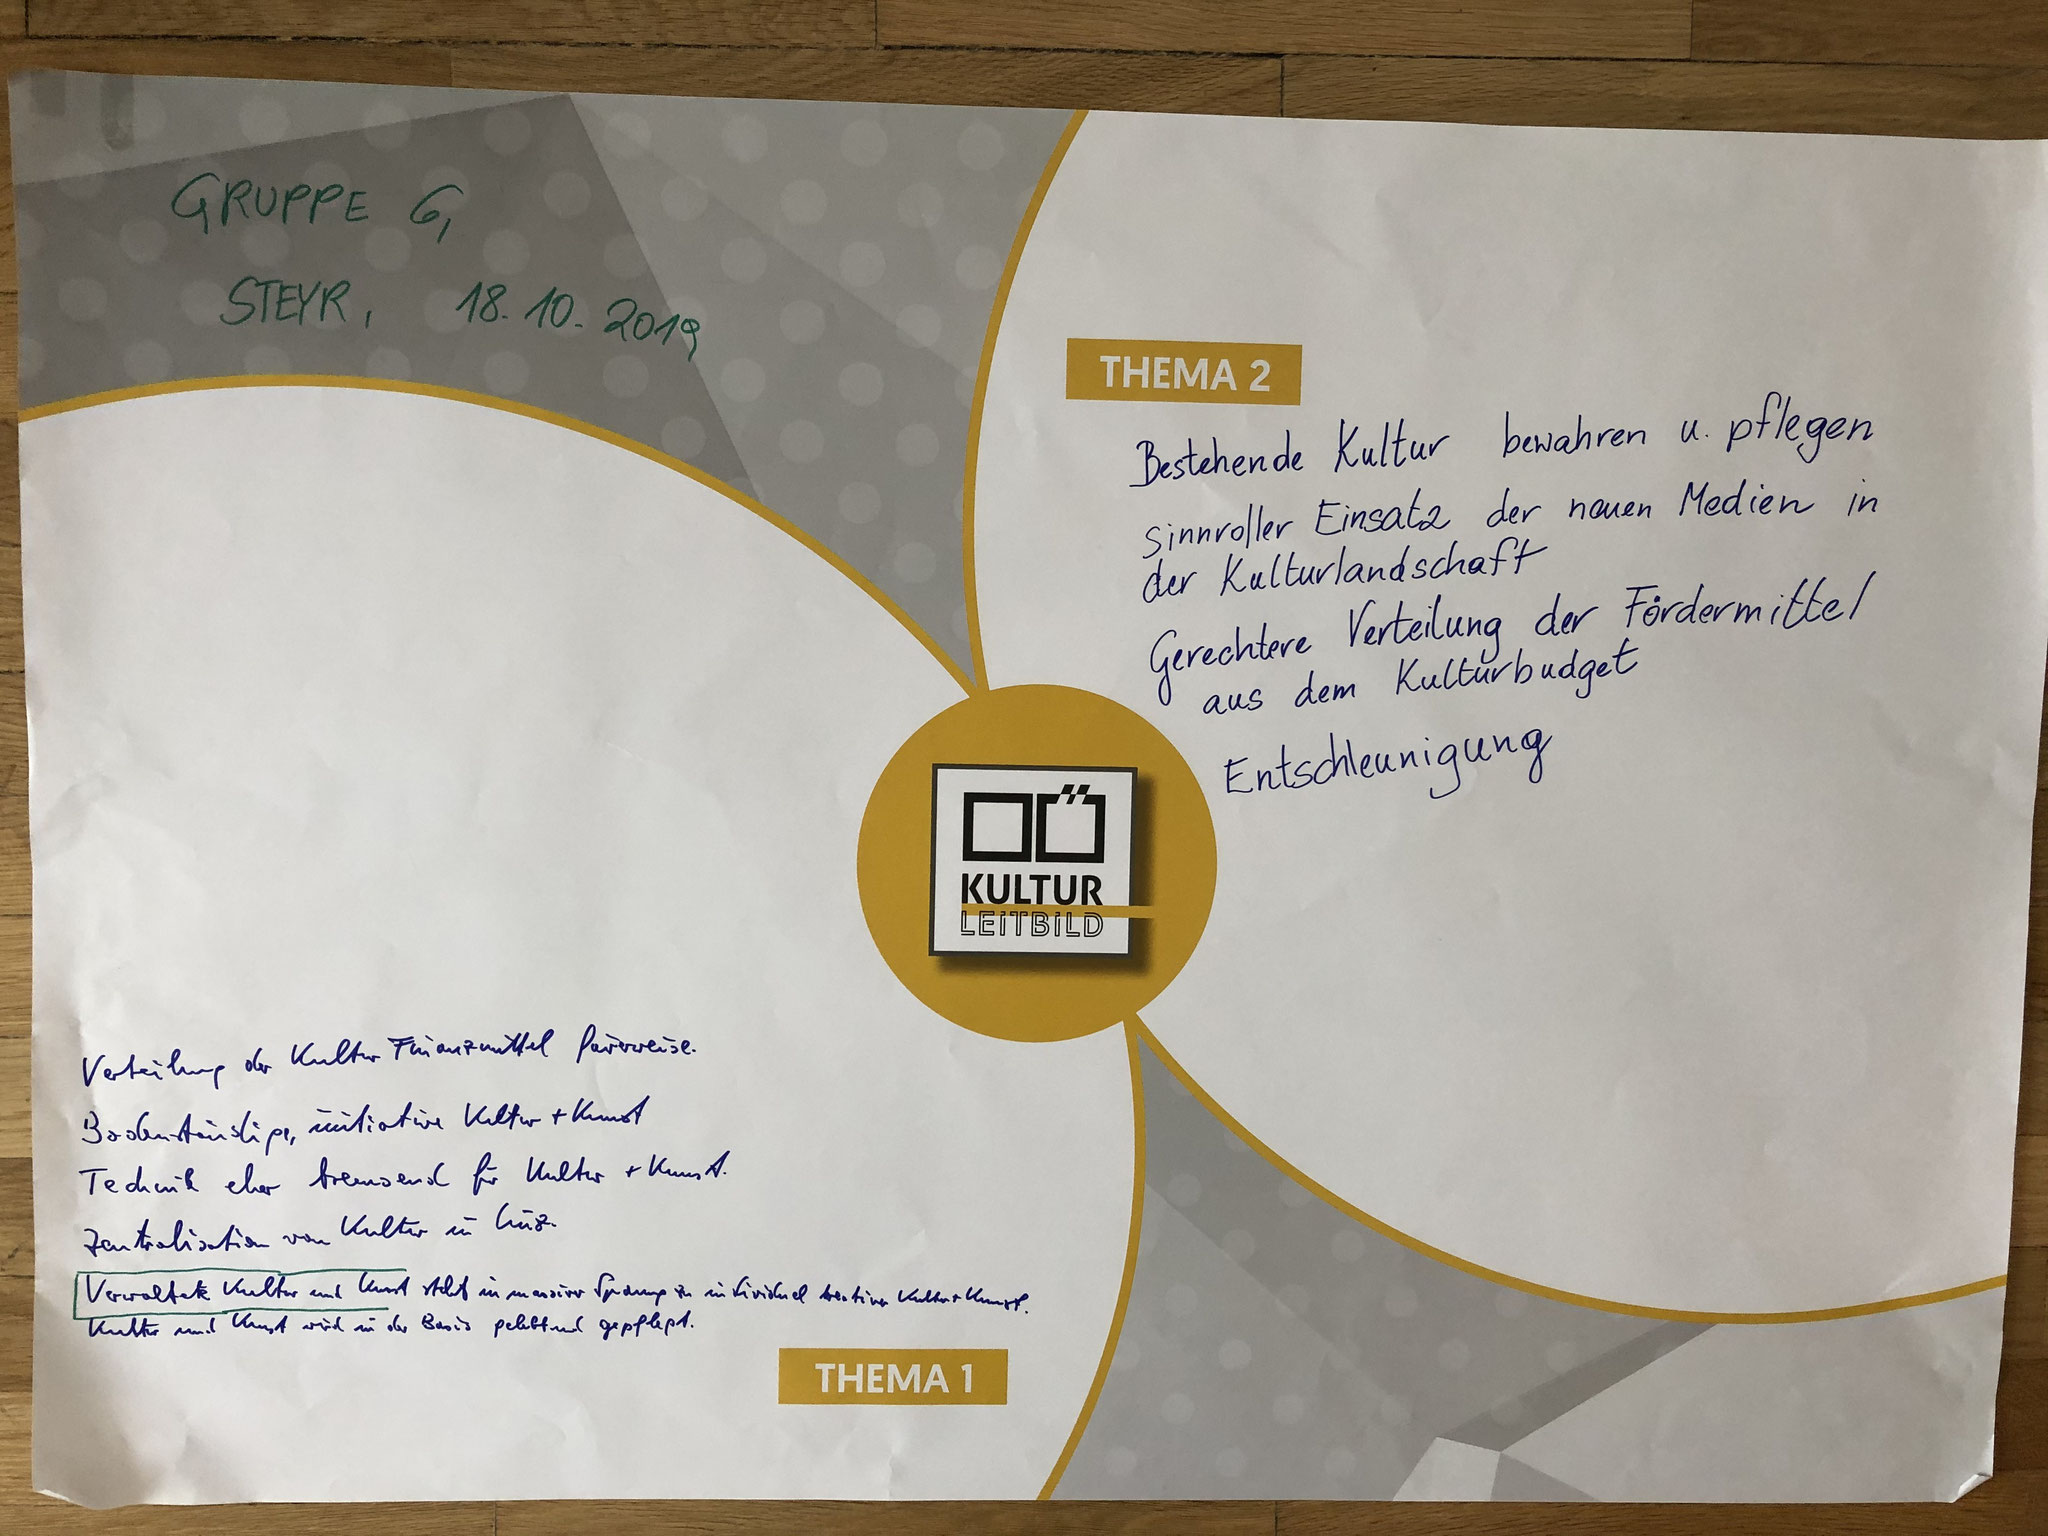 GRUPPE 6,
STEYR, 18.10.2019
THEMA 2
Bestehende Kultur bewahren u. pflegen
sinnvoller Einsatz der neuen Medien in
der Kulturlandschaft
Gerechtere Verteilung der Fördermittel
aus dem Kulturbudget
Entschleunigung
OÖ
KULTUR
LEITBILD
Verteilung der Kultur Finanzmittel
Bodenständige, initiative Kultur + Kunst
Technik eher bremsend für Kultur + Kunst.
Zentralisation von Kultur in Linz.
Verwaltete Kultur und Kunst steht in massiver Spannung zu individuel kreativer Kultur + Kunst.
Kultur und Kunst wird in der Basis gelebt und gepflegt.
THEMA 1